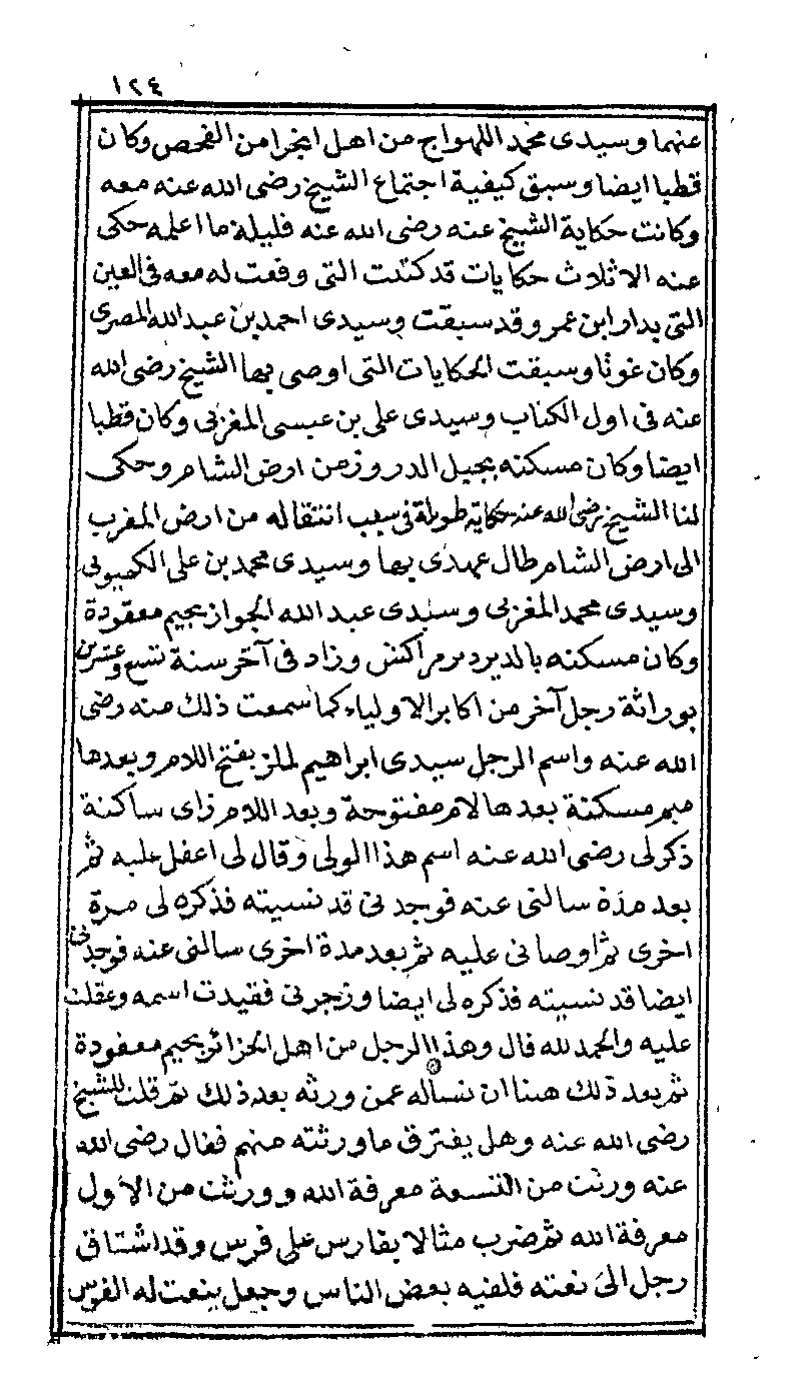 ١٢٤
عنهما وسيدى محمد اللهواج من اهل انجرا من الفحص وكان
قطبا ايضا وسبق كيفية اجتماع الشيخ رضى الله عنه معه
وكانت حكاية الشيخ عنه رضى الله عنه قليلة ما اعلمه حكى
عنه الا ثلاث حكايات قد كتبت التى وقعت له معه فى العين
التى بدار ابن عمر وقد سبقت وسيدى احمد بن عبد الله المصرى
وكان غوثا وسبقت الحكايات التى اوصى بها الشيخ رضى الله
عنه فى اول الكتاب وسيدى على بن عيسى المغربى وكان قطبا
ايضا وكان مسكنه بجبل الدروز من ارض الشام وحكى
لنا الشيخ رضى الله عنه حكاية طويلة فى سبب انتقاله من ارض المغرب
الى ارض الشام طال عهدى بها وسيدى محمد بن على الكيمونى
وسيدى محمد المغربى وسيدى عبد الله الجواز بجيم معقودة
وكان مسكنه بالدير دير مراكش وزاد فى آخر سنة تسع وعشرين
بوراثة رجل آخر من اكابر الاولياء كما سمعت ذلك منه رضى
الله عنه واسم الرجل سيدى ابراهيم لملز بفتح اللام وبعدها
ميم مسكنة بعدها لام مفتوحة وبعد اللام زاى ساكنة
ذكر لى رضى الله عنه اسم هذا الولى وقال لى اعقل عليه ثم
بعد مدة سالنى عنه فوجدنى قد نسيته فذكره لى مرة
اخرى ثم اوصانى عليه ثم بعد مدة اخرى سالنى عنه فوجدنى
ايضا قد نسيته فذكره لى ايضا وزجرنى فقيدت اسمه وعقلت
عليه والحمد لله قال وهذا الرجل من اهل الجزائر بجيم معقودة
ثم بعد ذلك هبنا ان نساله عمن ورثه بعد ذلك ثم قلت للشيخ
رضى الله عنه وهل يفترق ما ورثته منهم فقال رضى الله
عنه ورثت من التسعة معرفة الله وورثت من الأول
معرفة الله ثم ضرب مثالا بفارس على فرس وقد اشتاق
رجل الى نعته فلقيه بعض الناس وجعل ينعت له الفرس